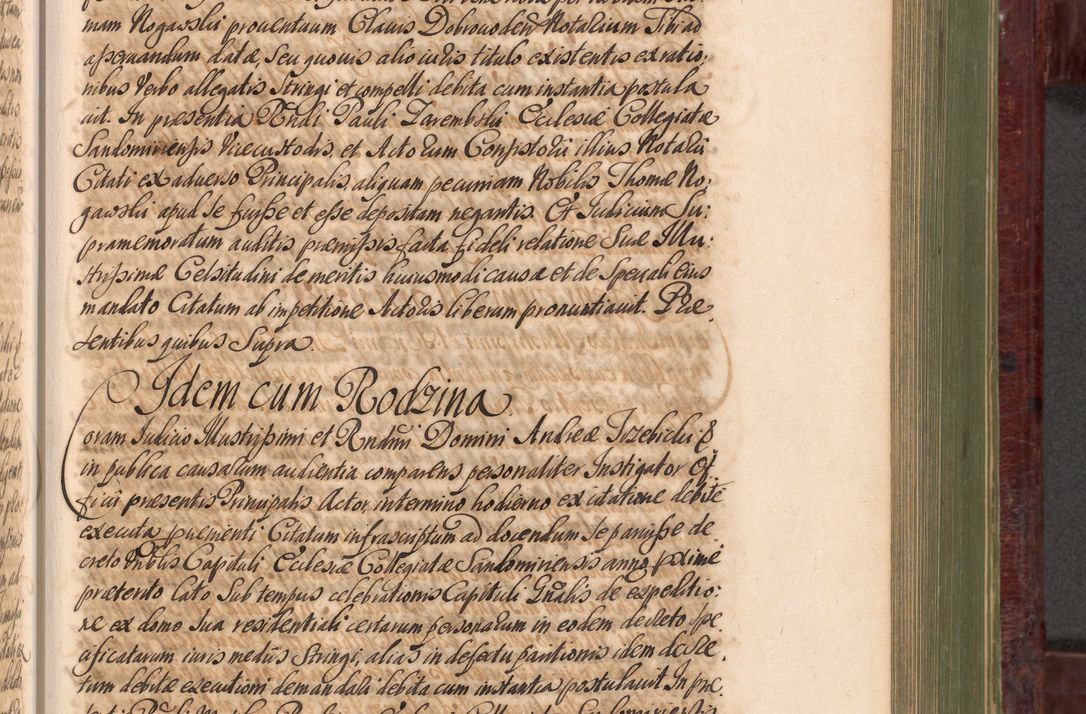 mam Nogawski proventuum Clavis Dobrovoden Notarium Tbi ad
assequandum datæ, seu quovis alio iuris titulo existentis ex ratio,
nibus Verbo allegatis Stringi et compelli debita cum instantia postula
vit. In præsentia Rndi Pauli Zarembski Ecclesiæ Collegiatæ
Sandomiriensis Vicecustodis, et Actorum Consistorii illius Notarii
Citati ex adverso Principalis, aliquam pecuniam Nobilis Thomæ No,
gawski apud se fuisse et esse depositam negantis. Et Iudicium Su:
pramemoratum auditis præmissis facta fideli relatione Suæ Illu:
strissimæ Celsitudini de meritis huiusmodi causæ et de Speciali Eius
mandato Citatum ab impetitione Actoris liberum pronuntiavit. Præ,
sentibus quibus Supra.
Idem cum Rodzina.
Coram Iudicio Illustrissimi et Rndmi Domini Andreæ Trzebicki
in publica causarum audientia comparens personaliter Instigator Of
ficii præsentis Principalis Actor, in termino hodierno ex citatione debitè
executa provenienti Citatum infrascriptum ad docendum se paruisse de
creto Vnblis Capituli Ecclesiæ Collegiatæ Sandomiriensis anno proximè
præterito lato Sub tempus celebrationis Capituli Gnalis de expeditio:
ne ex domo sua residentiali certarum personarum in eodem decreto spe
cificatarum iuris mediis Stringi, alias in defectu paritionis idem decre
tum debitæ executioni demandari debita cum instantia postulavit. In præ